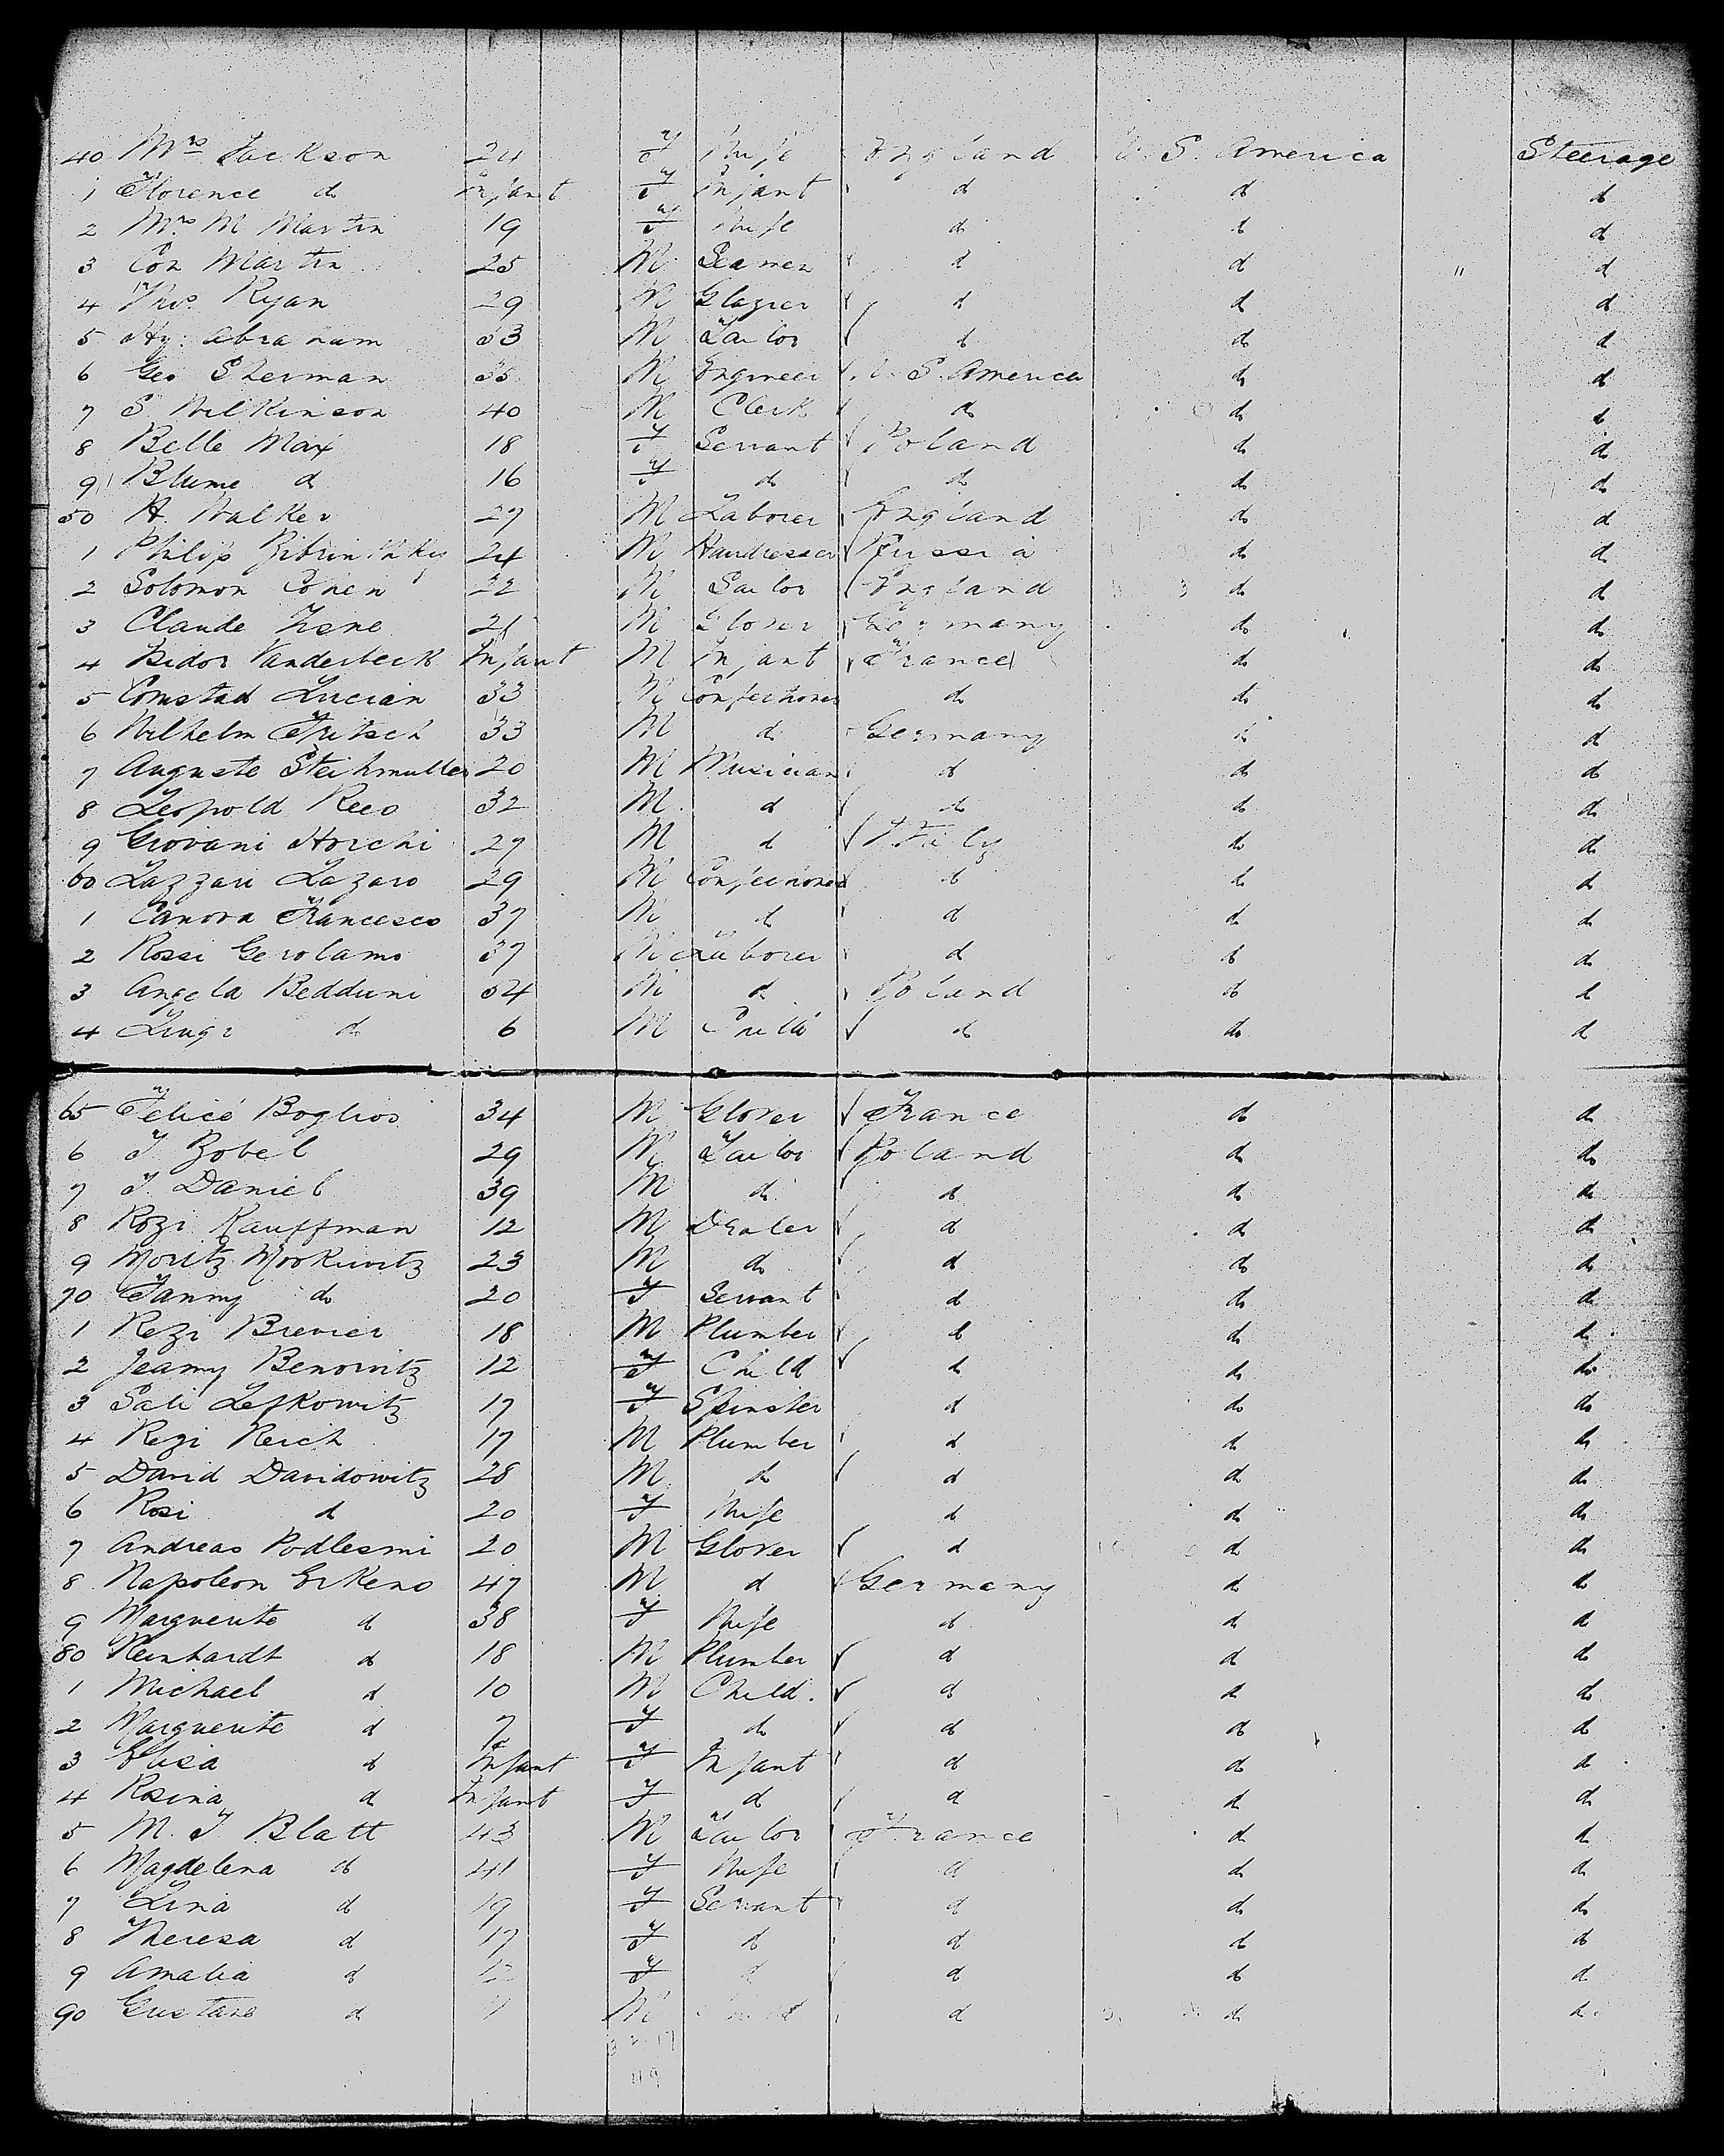 40 Mrs Jackson 24 F Wife England U. S. America Steerage
1 Florence do Infant F Infant do do do
2 Mrs M Martin 19 F Wife do do do
3 Con Martin 25 M Seamen do do " do
4 Thos Ryan 29 M Glazier do do do
5 Hy. Abraham 33 M Tailor do do do
6 Geo Sherman 35 M Engineer U. S. America do do
7 S. Wilkinson 40 M Clerk do do do
8 Belle Max 18 F Servant Poland do do
9 Blume do 16 F do do do do
50 H. Walker 27 M Laborer England do do
1 Philip 24 M Hairdresser Russia do do
2 Solomon Cohen 22 M Sailor England do do
3 Claude 21 M Glover Germany do do
4 Isidor Vanderbeck Infant M Infant France do do
5 Comstad Lucian 33 M Confectioner do do do
6 Wilhelm Fritsch 33 M do Germany do do
7 Auguste Steihmuller 20 M Musician do do do
8 Leopold Rees 32 M do do do do
9 Giovani Horchi 27 M do Italy do do
60 Lazzari Lazaro 29 M Confectioner do do do
1 Canova Francesco 37 M do do do do
2 Rossi Gerolamo 37 M Laborer do do do
3 Angela Bedduni 34 M do Poland do do
4 Luigi do 6 M Child do do do
65 Felicé Boglios 34 M Glover France do do
6 J Zobel 29 M Tailor Poland do do
7 J. Daniel 39 M do do do do
8 Rozi Kauffman 12 M Dealer do do do
9 Moritz Morkuvitz 23 M do do do do
70 Fanny do 20 F Servant do do do
1 Rezi Brevier 18 M Plumber do do do
2 Jeamy Benowitz 12 F Child do do do
3 Sali Lefkowitz 17 F Spinster do do do
4 Rezi Reich 17 M Plumber do do do
5 David Davidowitz 28 M do do do do
6 Rosi do 20 F Wife do do do
7 Andreas Podlesmi 20 M Glover do do do
8 Napoleon Erkens 47 M do Germany do do
9 Marguerite do 38 F Wife do do do
80 Reinhardt do 18 M Plumber do do do
1 Michael do 10 M Child. do do do
2 Marguerite do 7 F do do do do
3 Elisa do Infant F Infant do do do
4 Rosina do Infant F do do do do
5 M. J. Blatt 43 M Tailor France do do
6 Magdelena do 41 F Wife do do do
7 Lina do 19 F Servant do do do
8 Theresa do 17 F do do do do
9 Amalia do 12 F do do do do
90 Gustave do M do do do